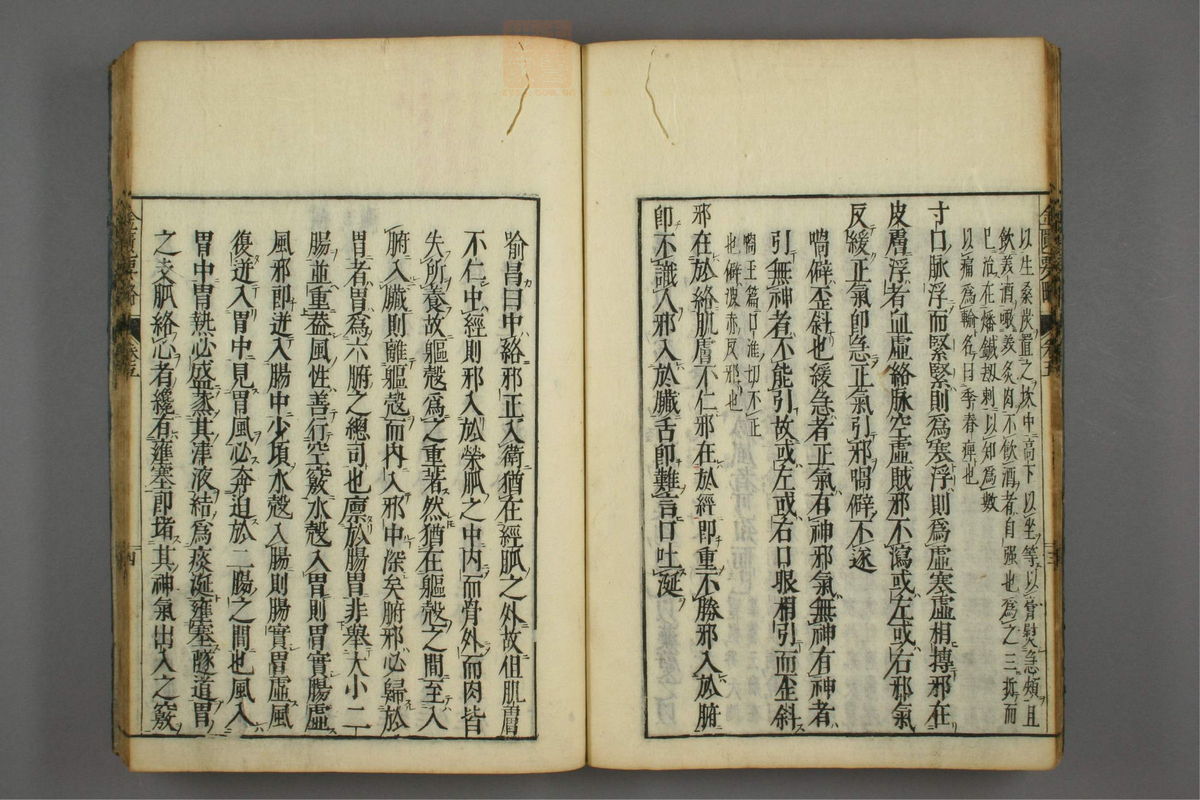 以生桑炭置之坎中高下以坐等以膏熨急頰且
飲美酒噉美炙肉不飲酒者自强也爲之三拊而
已治在燔鍼刼刺以知爲數
以痛爲輸名曰季春痺也
寸口脉浮而緊緊則爲寒浮則爲虛寒虛相摶邪在
皮膚浮者血虛絡脉空虛賊邪不瀉或左或右邪氣
反緩正氣卽急正氣引邪喎僻不遂
喎僻歪斜也緩急者正氣有神邪氣無神有神者
引無神者不能引故或左或右口眼相引而歪斜
喎玉篇口淮切口不正
也僻波亦反邪也
邪在於絡肌膚不仁邪在於經卽重不勝邪入於腑
卽不識人邪入於臟舌卽難言口吐涎
喻昌曰中絡邪正入衛猶在經脈之外故但肌膚
不仁中經則邪入於榮脈之中內而骨外而肉皆
失所養故軀殻爲之重著然猶在軀殻之間至入
腑入臟則離軀殻而內入邪中深矣腑邪必歸於
胃者胃爲六腑之總司也廩於腸胃非舉大小二
腸並重葢風性善行空竅水穀入胃則胃實腸虛
風邪卽迸入腸中少頃水穀入腸則腸實胃虛風
復迸入胃中見胃風必奔迫於二腸之間也風入
胃中胃熱必盛蒸其津液結爲痰涎壅塞隧道胃
之支脈絡心者纔有壅塞卽堵其神氣出入之竅
四